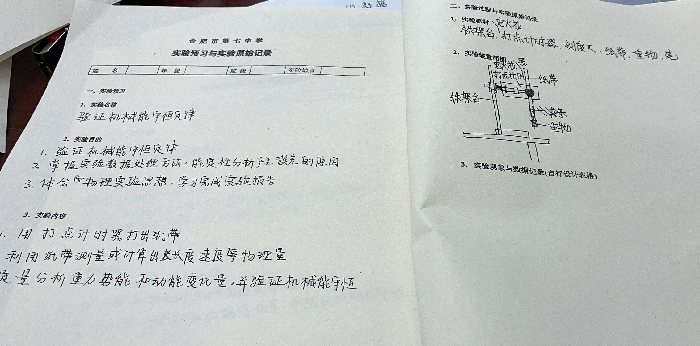 合肥市第七中学
实验预习与实验原始记录
姓 名 年 级 班 级 实验地点
一、实验预习
1、实验名称
验证机械能守恒定律
2、实验目的
1. 验证机械能守恒定律
2. 掌握实验数据处理方法,能定性分析产生误差的原因
3. 体会物理实验思想,学习完成实验报告
3、实验内容
1. 用打点计时器打出纸带
利用纸带测量或计算出长度速度等物理量
定量分析重力势能和动能变化量,并验证机械能守恒
二、实验过程与实验原始记录
1、实验器材
铁架台、打点计时器、刻度尺、纸带、重物、
2、实验装置简图
纸带
铁架台
夹子
重物
3、实验现象与数据记录(自行设计表格)